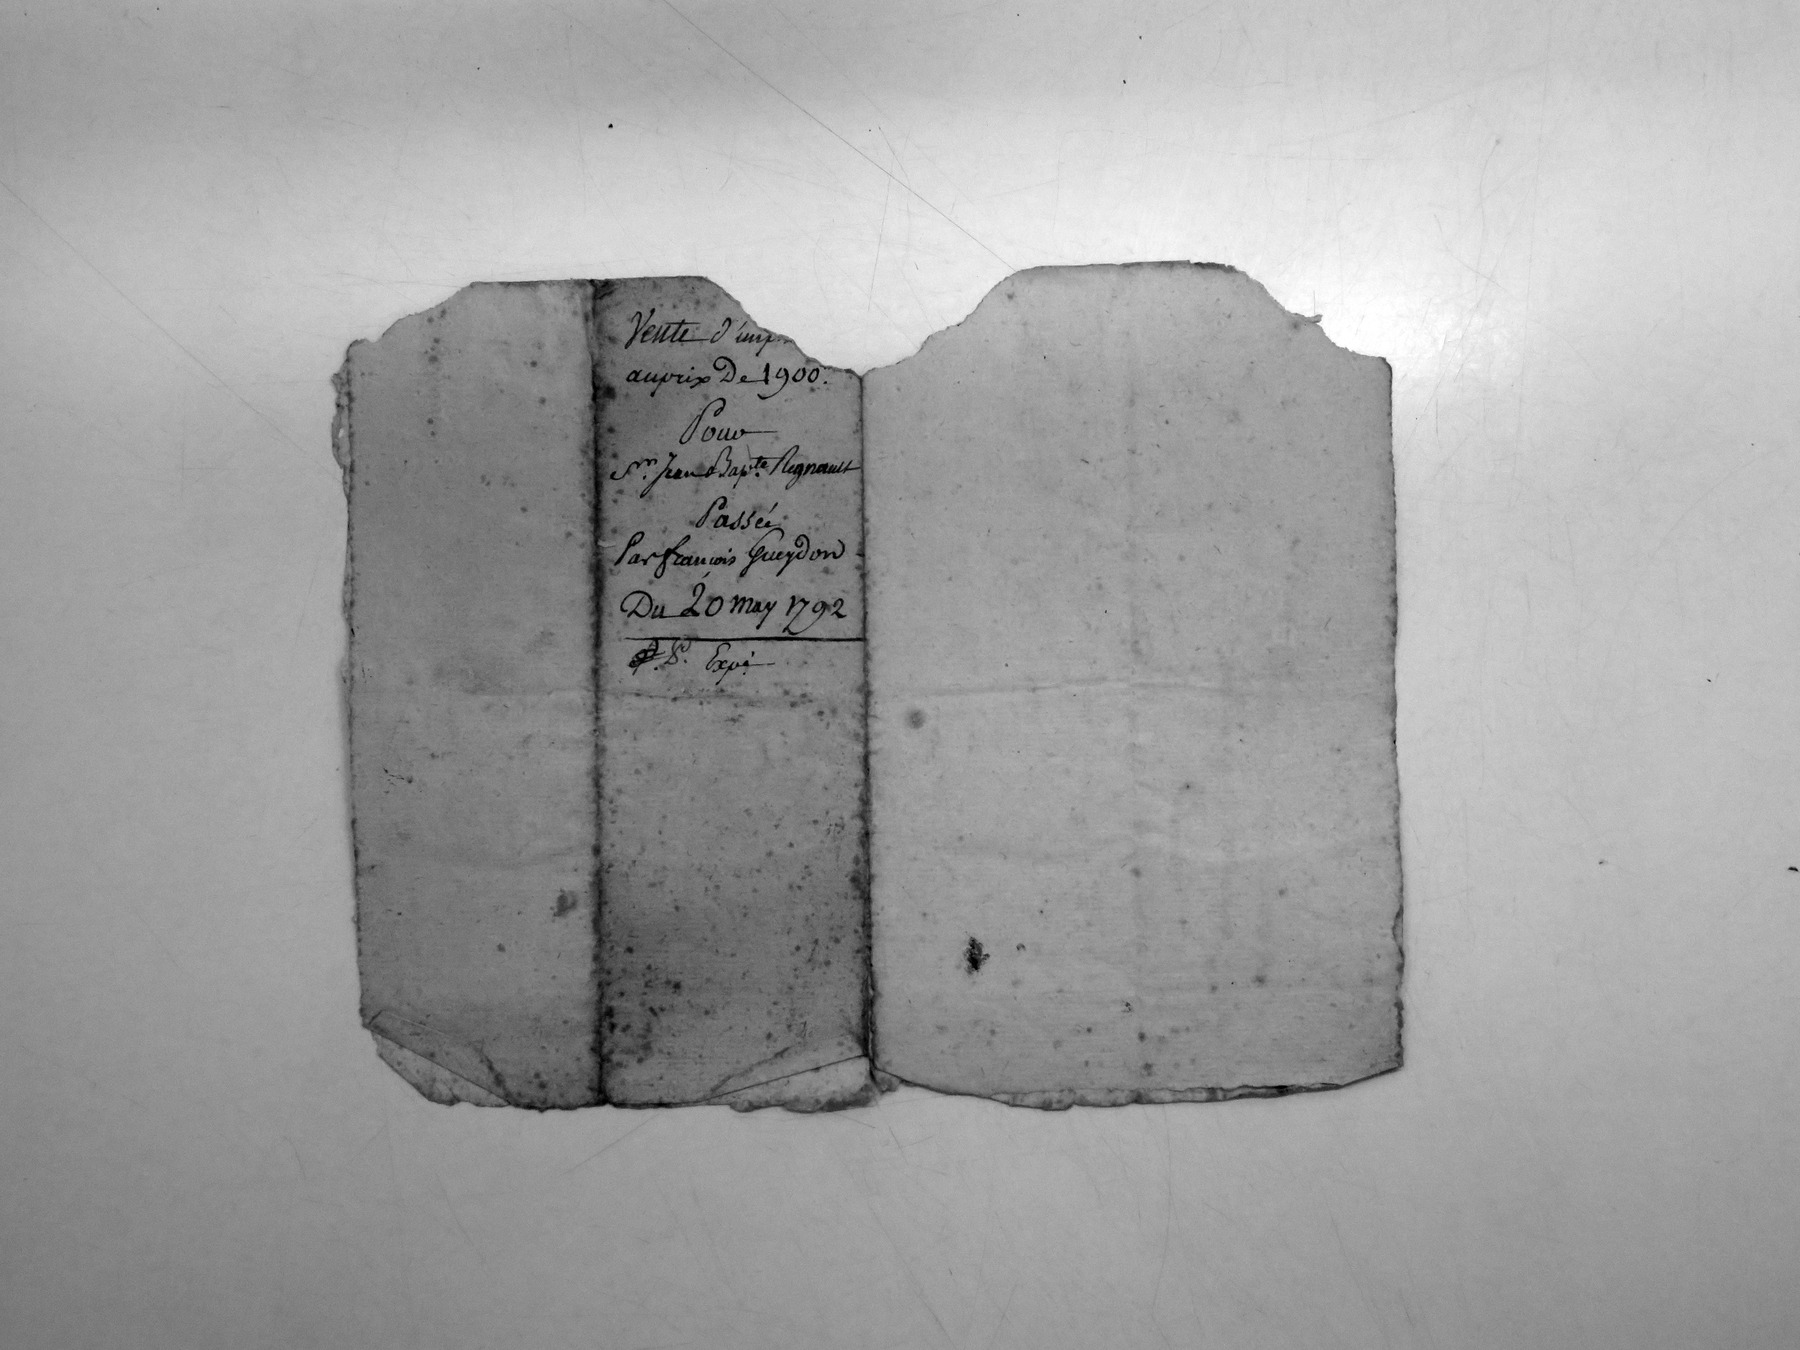 Vente d'un
au prix De 1900.
Pour
Sr. Jean Bapte. Regnault
Passée
Par françois Gueydon
Du 20 may 1792
Expé